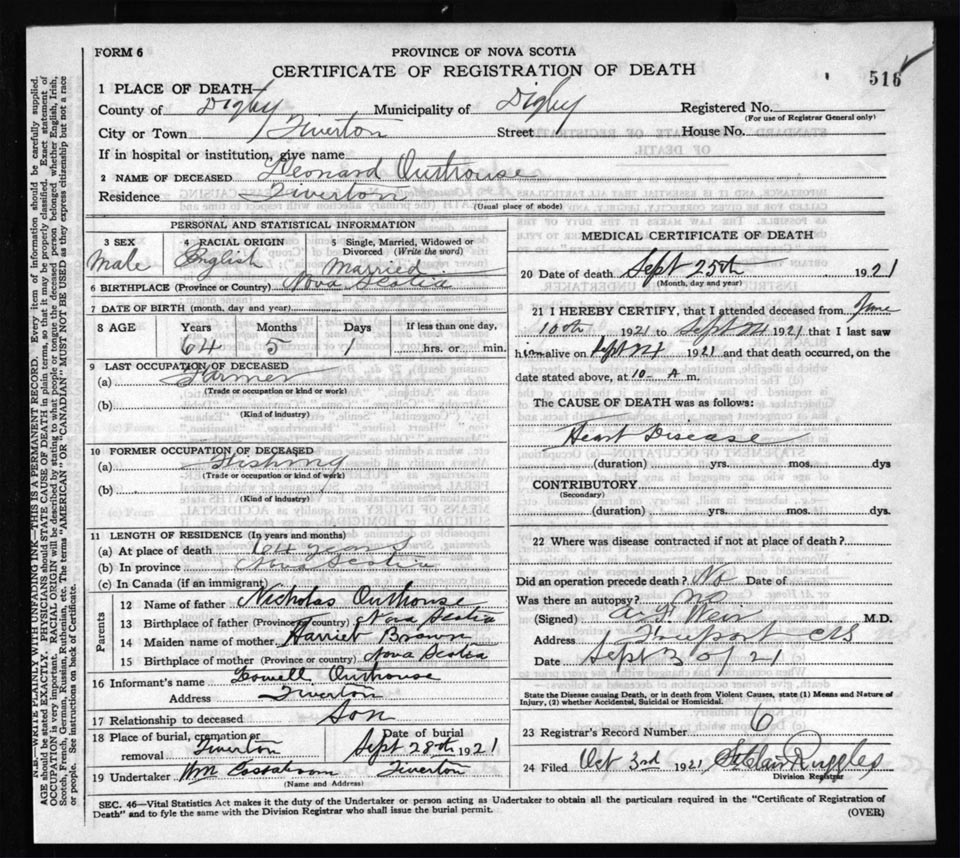 FORM 6
PROVINCE OF NOVA SCOTIA
CERTIFICATE OF REGISTRATION OF DEATH
516
1 PLACE OF DEATH
County of Digby Municipality of Digby Registered No.
(For use of Registrar General only)
City or Town Tiverton Street House No.
If in hospital or institution, give name
2 NAME OF DECEASED Leonard Outhouse
Residence Tiverton
(Usual place of abode)
PERSONAL AND STATISTICAL INFORMATION
3 SEX Male
4 RACIAL ORIGIN English
5 Single, Married, Widowed or Divorced (Write the word) Married
6 BIRTHPLACE (Province or Country) Nova Scotia
7 DATE OF BIRTH (month, day and year)
8 AGE Years Months Days If less than one day,
64 5 1 hrs. or min.
9 LAST OCCUPATION OF DECEASED
(a) Farmer
(Trade or occupation or kind or work)
(b)
(Kind of industry)
10 FORMER OCCUPATION OF DECEASED
(a) Fishing
(Trade or occupation or kind or work)
(b)
(Kind of industry)
11 LENGTH OF RESIDENCE (In years and months)
(a) At place of death 64 years
(b) In province Nova Scotia
(c) In Canada (if an immigrant)
Parents
12 Name of father Nicholas Outhouse
13 Birthplace of father (Province or country) Nova Scotia
14 Maiden name of mother Harriet Brown
15 Birthplace of mother (Province or country) Nova Scotia
16 Informant's name Lowell Outhouse
Address Tiverton
17 Relationship to deceased Son
18 Place of burial, cremation or removal Tiverton
Date of burial Sept 28th 1921
19 Undertaker Wm Tiverton
(Name and Address)
MEDICAL CERTIFICATE OF DEATH
20 Date of death Sept 25th 1921
(Month, day and year)
21 I HEREBY CERTIFY, that I attended deceased from June
10th 1921 to Sept 24 1921 that I last saw
him alive on Sept 24 1921 and that death occurred, on the
date stated above, at 10 A m.
The CAUSE OF DEATH was as follows:
Heart Disease
(duration) yrs. mos. dys
CONTRIBUTORY
(Secondary)
(duration) yrs. mos. dys.
22 Where was disease contracted if not at place of death?
Did an operation precede death? No Date of
Was there an autopsy? No
(Signed) Weir M.D.
Address Freeport NS
Date Sept 30 21
State the Disease causing Death, or in death from Violent Causes, state (1) Means and Nature of
Injury, (2) whether Accidental, Suicidal or Homicidal.
23 Registrar's Record Number 6
24 Filed Oct 3rd 1921 St Clair Ruggles
Division Registrar
SEC. 46—Vital Statistics Act makes it the duty of the Undertaker or person acting as Undertaker to obtain all the particulars required in the "Certificate of Registration of
Death" and to fyle the same with the Division Registrar who shall issue the burial permit.
(OVER)
N.B.—WRITE PLAINLY WITH UNFADING INK—THIS IS A PERMANENT RECORD. Every item of information should be carefully supplied.
AGE should be stated EXACTLY. PHYSICIANS should STATE CAUSE OF DEATH in plain terms, so that it may be properly classified. Exact statement of
OCCUPATION is very important. RACIAL ORIGIN will be described by stating to what people or tongue the deceased person belonged whether English, Irish,
Scotch, French, German, Russian, Ruthenian, etc. The terms "AMERICAN" OR "CANADIAN" MUST NOT BE USED as they express citizenship but not a race
or people. See instructions on back of Certificate.